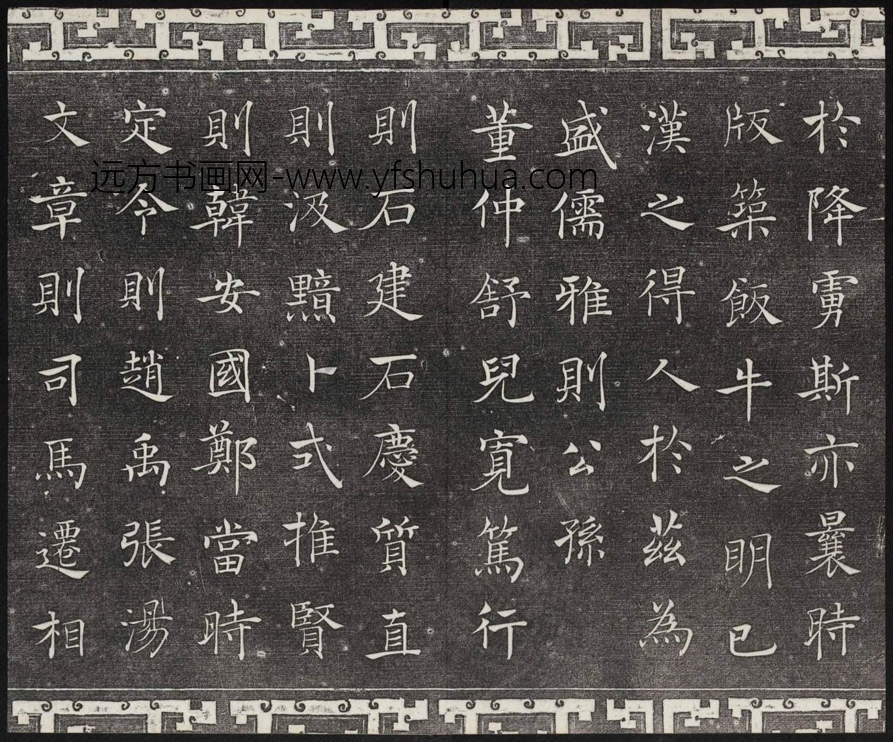 於降虜斯亦曩時
版築飯牛之明已
漢之得人於茲為
盛儒雅則公孫
董仲舒兒寬篤行
則石建石慶質直
則汲黯卜式推賢
則韓安國鄭當時
定令則趙禹張湯
文章則司馬遷相
远方书画网-www.yfshuhua.com